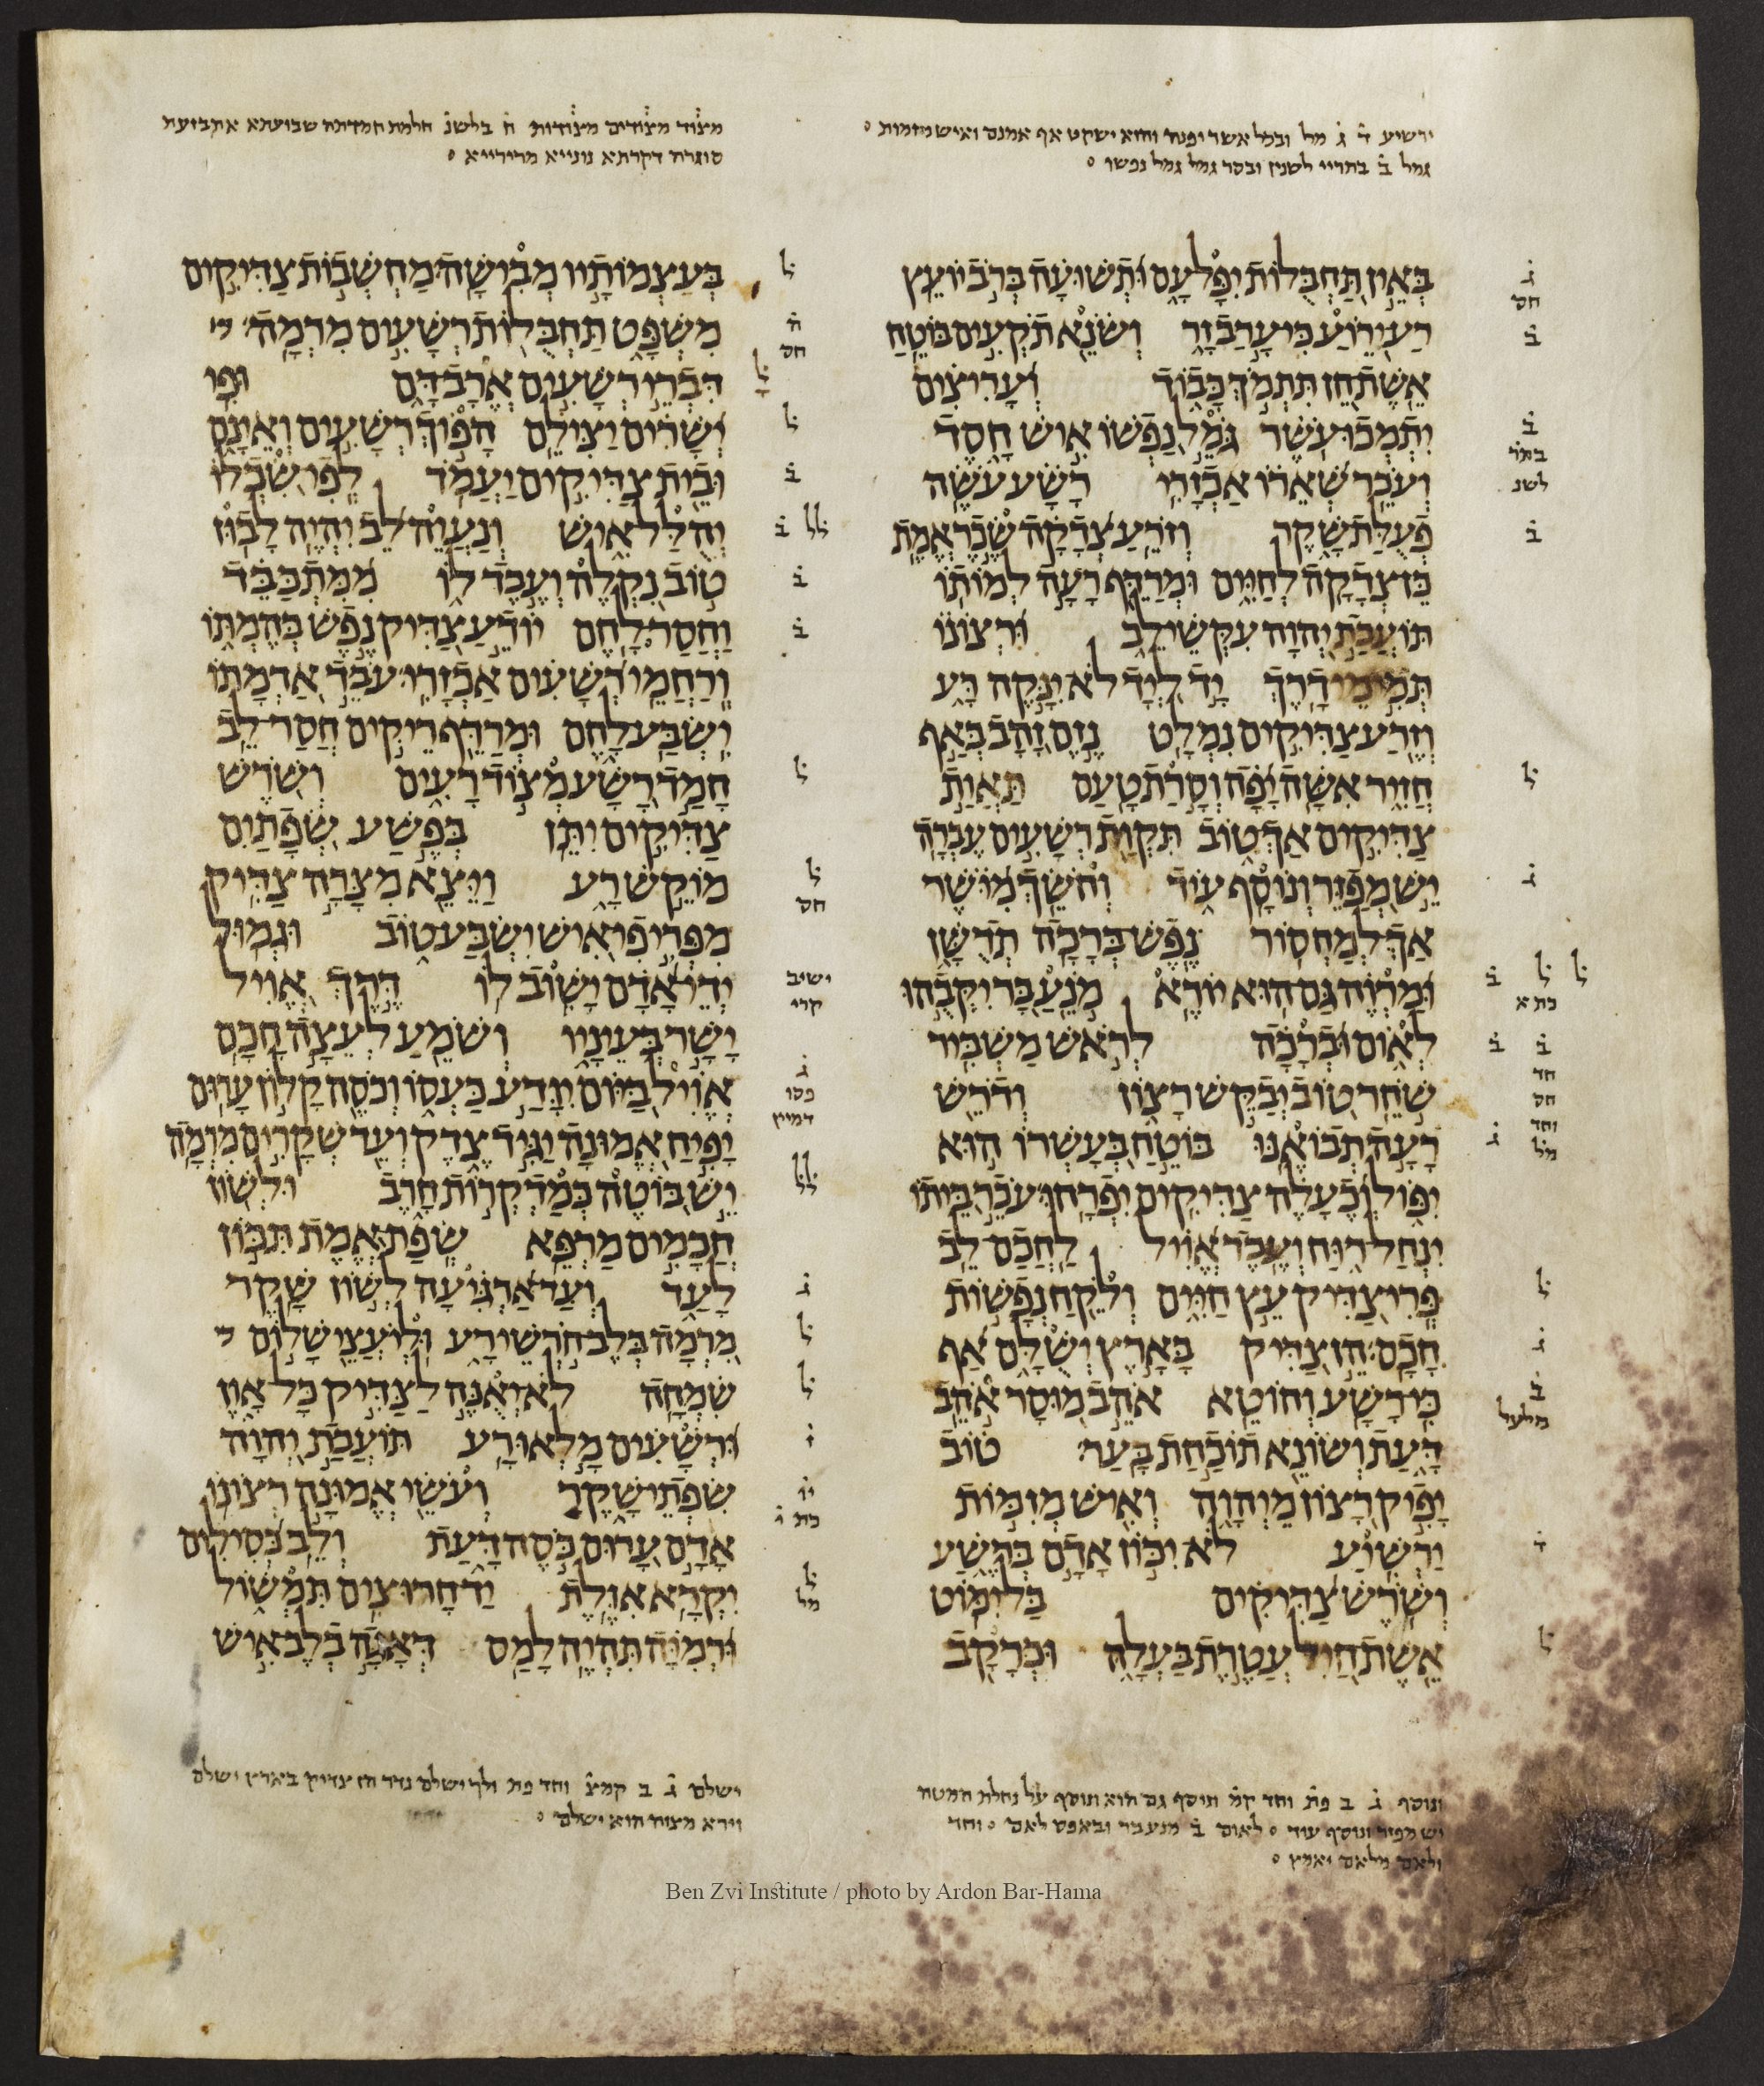 ירשיע ד ג מל ובכל אשר יפנה והוא ישקט אף אמנם ואיש מזמות
גמל ב בתריי לשנין ובסר גמל גמל נפשו
בְּאֵין תַּחְבֻּלוֹת יִפָּל עָם וּתְשׁוּעָה בְּרֹב יוֹעֵץ
רַע יֵרוֹעַ כִּי עָרַב זָר וְשֹׂנֵא תֹקְעִים בּוֹטֵחַ
אֵשֶׁת חֵן תִּתְמֹךְ כָּבוֹד וְעָרִיצִים
יִתְמְכוּ עֹשֶׁר גֹּמֵל נַפְשׁוֹ אִישׁ חָסֶד
וְעֹכֵר שְׁאֵרוֹ אַכְזָרִי רָשָׁע עֹשֶׂה
פְעֻלַּת שָׁקֶר וְזֹרֵעַ צְדָקָה שֶׂכֶר אֱמֶת
כֵּן צְדָקָה לְחַיִּים וּמְרַדֵּף רָעָה לְמוֹתוֹ
תּוֹעֲבַת יְהוָה עִקְּשֵׁי לֵב וּרְצוֹנוֹ
תְּמִימֵי דָרֶךְ יָד לְיָד לֹא יִנָּקֶה רָּע
וְזֶרַע צַדִּיקִים נִמְלָט נֶזֶם זָהָב בְּאַף
חֲזִיר אִשָּׁה יָפָה וְסָרַת טָעַם תַּאֲוַת
צַדִּיקִים אַךְ טוֹב תִּקְוַת רְשָׁעִים עֶבְרָה
יֵשׁ מְפַזֵּר וְנוֹסָף עוֹד וְחֹשֵׂךְ מִיֹּשֶׁר
אַךְ לְמַחְסוֹר נֶפֶשׁ בְּרָכָה תְדֻשָּׁן
וּמַרְוֶה גַּם הוּא יוֹרֶא מֹנֵעַ בָּר יִקְּבֻהוּ
לְאוֹם וּבְרָכָה לְרֹאשׁ מַשְׁבִּיר
שֹׁחֵר טוֹב יְבַקֵּשׁ רָצוֹן וְדֹרֵשׁ
רָעָה תְבוֹאֶנּוּ בּוֹטֵחַ בְּעָשְׁרוֹ הוּא
יִפּוֹל וְכֶעָלֶה צַדִּיקִים יִפְרָחוּ עֹכֵר בֵּיתוֹ
יִנְחַל רוּחַ וְעֶבֶד אֱוִיל לַחֲכַם לֵב
פְּרִי צַדִּיק עֵץ חַיִּים וְלֹקֵחַ נְפָשׂוֹת
חָכָם הֵן צַדִּיק בָּאָרֶץ יְשֻׁלָּם אַף
כִּי רָשָׁע וְחוֹטֵא אֹהֵב מוּסָר אֹהֵב
דָּעַת וְשׂוֹנֵא תוֹכַחַת בָּעַר טוֹב
יָפִיק רָצוֹן מֵיְהוָה וְאִישׁ מְזִמּוֹת
יַרְשִׁיעַ לֹא יִכּוֹן אָדָם בְּרֶשַׁע
וְשֹׁרֶשׁ צַדִּיקִים בַּל יִמּוֹט
אֵשֶׁת חַיִל עֲטֶרֶת בַּעְלָהּ וּכְרָקָב
ונוסף ג ב פת וחד קמ תוסף גם הוא תוסף על נחלת המטה
יש מפזר ונוסף עוד לאום ב מנע בר ובאפס לאם וחד
ולאם מלאם יאמץ
מצוד מצודים מצודות ח בלשנ חלמת חמדתה שבועתא אתבזעת
סוגרה דקרתא נונייא מרירייא
בְּעַצְמוֹתָיו מְבִישָׁה מַחְשְׁבוֹת צַדִּיקִים
מִשְׁפָּט תַּחְבֻּלוֹת רְשָׁעִים מִרְמָה
דִּבְרֵי רְשָׁעִים אֱרָב דָּם וּפִי
יְשָׁרִים יַצִּילֵם הָפוֹךְ רְשָׁעִים וְאֵינָם
וּבֵית צַדִּיקִים יַעֲמֹד לְפִי שִׂכְלוֹ
יְהֻלַּל אִישׁ וְנַעֲוֵה לֵב יִהְיֶה לָבוּז
טוֹב נִקְלֶה וְעֶבֶד לוֹ מִמִּתְכַּבֵּד
וַחֲסַר לָחֶם יוֹדֵעַ צַדִּיק נֶפֶשׁ בְּהֶמְתּוֹ
וְרַחֲמֵי רְשָׁעִים אַכְזָרִי עֹבֵד אַדְמָתוֹ
יִשְׂבַּע לָחֶם וּמְרַדֵּף רֵיקִים חֲסַר לֵב
חָמַד רָשָׁע מְצוֹד רָעִים וְשֹׁרֶשׁ
צַדִּיקִים יִתֵּן בְּפֶשַׁע שְׂפָתַיִם
מוֹקֵשׁ רָע וַיֵּצֵא מִצָּרָה צַדִּיק
מִפְּרִי פִי אִישׁ יִשְׂבַּע טוֹב וּגְמוּל
יְדֵי אָדָם יָשׁוּב לוֹ דֶּרֶךְ אֱוִיל
יָשָׁר בְּעֵינָיו וְשֹׁמֵעַ לְעֵצָה חָכָם
אֱוִיל בַּיּוֹם יִוָּדַע כַּעְסוֹ וְכֹסֶה קָלוֹן עָרוּם
יָפִיחַ אֱמוּנָה יַגִּיד צֶדֶק וְעֵד שְׁקָרִים מִרְמָה
יֵשׁ בּוֹטֶה כְּמַדְקְרוֹת חָרֶב וּלְשׁוֹן
חֲכָמִים מַרְפֵּא שְׂפַת אֱמֶת תִּכּוֹן
לָעַד וְעַד אַרְגִּיעָה לְשׁוֹן שָׁקֶר
מִרְמָה בְּלֶב חֹרְשֵׁי רָע וּלְיֹעֲצֵי שָׁלוֹם
שִׂמְחָה לֹא יְאֻנֶּה לַצַּדִּיק כָּל אָוֶן
וּרְשָׁעִים מָלְאוּ רָע תּוֹעֲבַת יְהוָה
שִׂפְתֵי שָׁקֶר וְעֹשֵׂי אֱמוּנָה רְצוֹנוֹ
אָדָם עָרוּם כֹּסֶה דָּעַת וְלֵב כְּסִילִים
יִקְרָא אִוֶּלֶת יַד חָרוּצִים תִּמְשׁוֹל
וּרְמִיָּה תִּהְיֶה לָמַס דְּאָגָה בְלֶב אִישׁ
ישלם ג ב קמצ וחד פת ולך ישלם נדר הן צדיק בארץ ישלם
וירא מצוה הוא ישלם
Ben Zvi Institute / photo by Ardon Bar-Hama